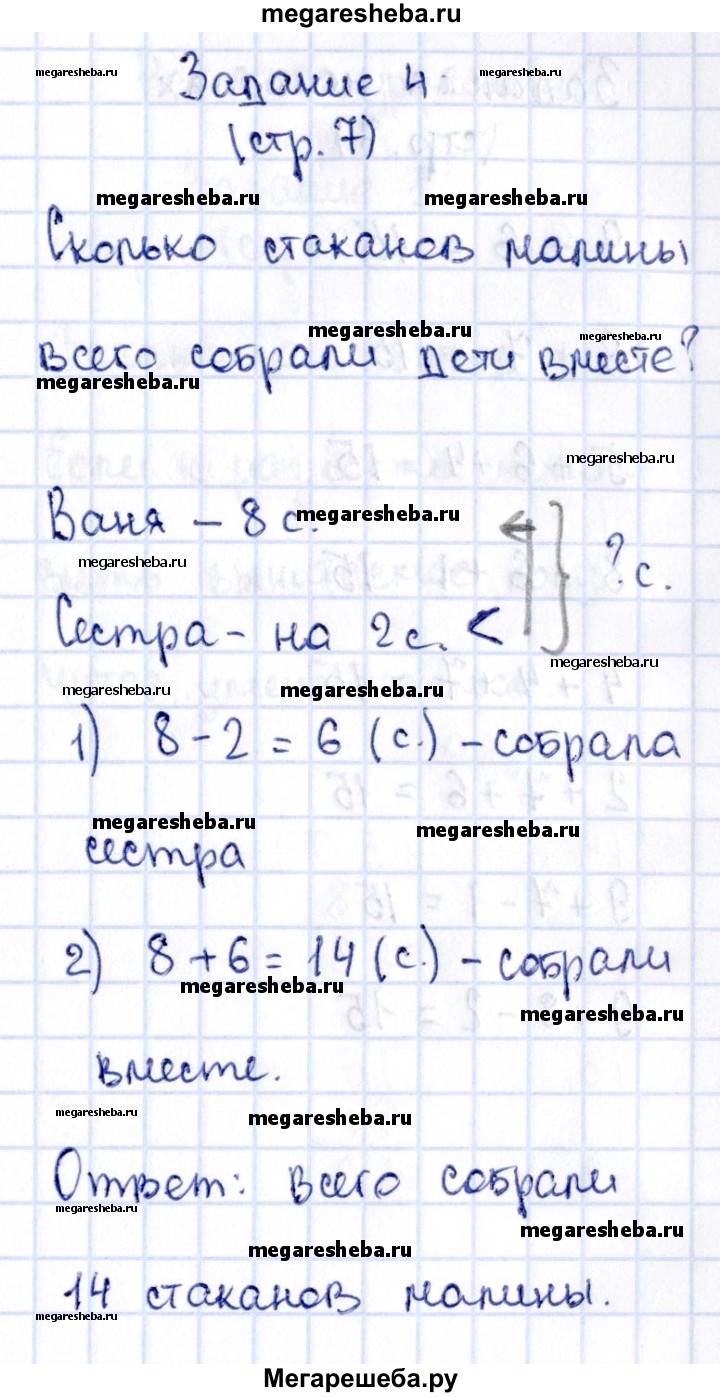 megaresheba.ru
megaresheba.ru megaresheba.ru
Задание 4
(стр. 7)
megaresheba.ru megaresheba.ru
Сколько стаканов малины
megaresheba.ru megaresheba.ru
всего собрали дети вместе?
megaresheba.ru
megaresheba.ru
Ваня – 8 с. megaresheba.ru
megaresheba.ru ? с.
Сестра – на 2 с. <
megaresheba.ru
megaresheba.ru megaresheba.ru
1) 8 - 2 = 6 (с.) – собрала
megaresheba.ru megaresheba.ru
сестра
2) 8 + 6 = 14 (с.) – собрали
megaresheba.ru megaresheba.ru
вместе.
megaresheba.ru megaresheba.ru
Ответ: всего собрали
megaresheba.ru megaresheba.ru
megaresheba.ru
14 стаканов малины.
megaresheba.ru
Мегарешеба.ру